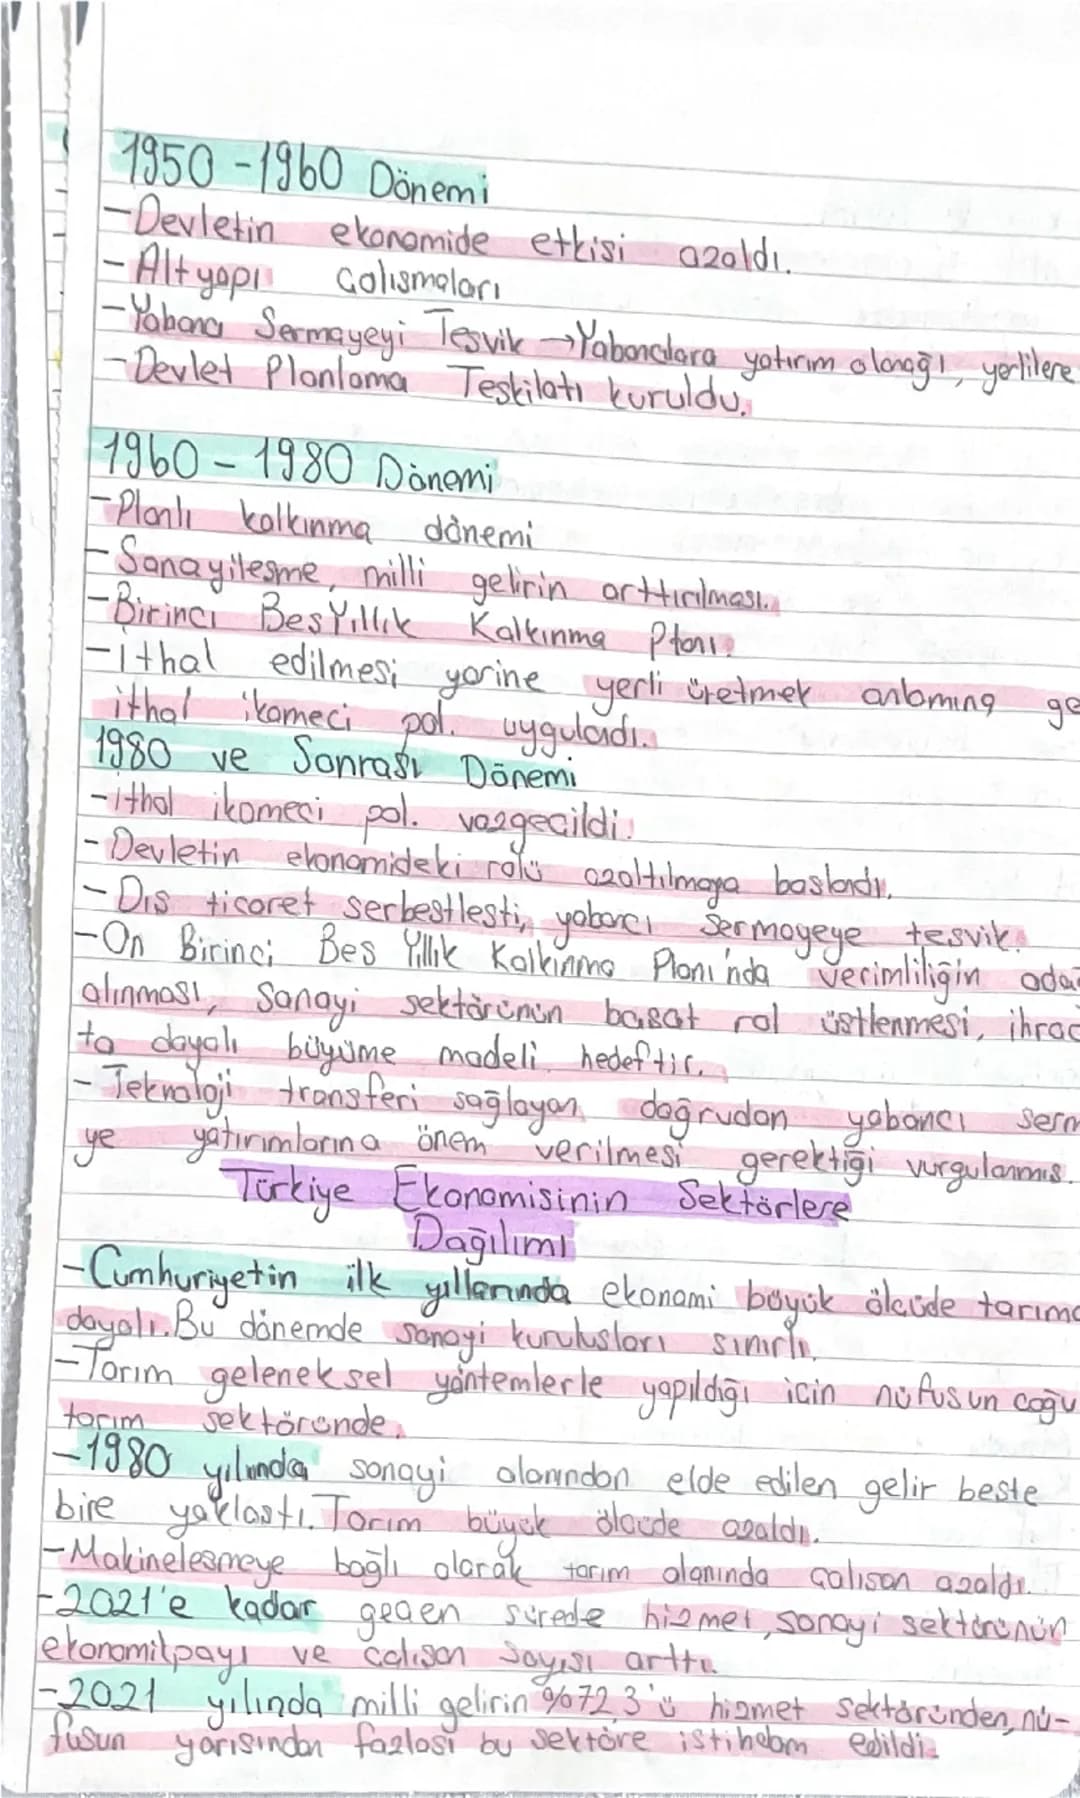 1950-1960 Dönemi
-Devletin ekonomide etkisi azaldı.
-Altyapı Calısmaları
-Yabancı Sermayeyi Tesvik →Yabancılara yatırım olanağı, yerlilere
-Devlet Planlama Teskilatı kuruldu.
1960-1980 Dönemi
-Planlı kalkınma dönemi
-Sanayilesme, milli gelirin arttırılması.
-Birinci Bes Yıllık Kalkınma Planı.
-ithal edilmesi yerine yerli üretmek anlamına ge
ithal ikameci pol. uygulandı.
1980 ve Sonrası Dönemi
-ithal ikameci pol. vazgecildi.
-Devletin ekonomideki rolü azaltılmaya baslandı.
-Dıs ticaret serbestlesti, yabancı Sermayeye tesvik.
-On Birinci Bes Yıllık Kalkınma Planı'nda verimliliğin oda
alınması, Sanayi sektörünün basat rol üstlenmesi, ihrac
ta dayalı büyüme modeli hedeftir.
-Teknoloji transferi sağlayan doğrudan yabancı serm
ye yatırımlarına önem verilmesi gerektiği vurgulanmıs.
Türkiye Ekonomisinin Sektörlere
Dağılımı
-Cumhuriyetin ilk yıllarında ekonomi büyük ölcüde tarıma
dayalı. Bu dönemde sanayi kurulusları sınırlı.
-Tarım geleneksel yöntemlerle yapıldığı icin nüfusun coğu
tarım sektöründe.
-1980 yılında sanayi alanından elde edilen gelir beste
bire yaklastı. Tarım büyük ölcüde azaldı.
-Makinelesmeye bağlı olarak tarım alanında calısan azaldı.
-2021'e kadar gecen sürede hizmet, sanayi sektörünün
ekonomikpayı ve calısan Sayısı arttı.
-2021 yılında milli gelirin %72,3'ü hizmet sektöründen, nü-
fusun yarısından fazlası bu sektöre istihdam edildi.